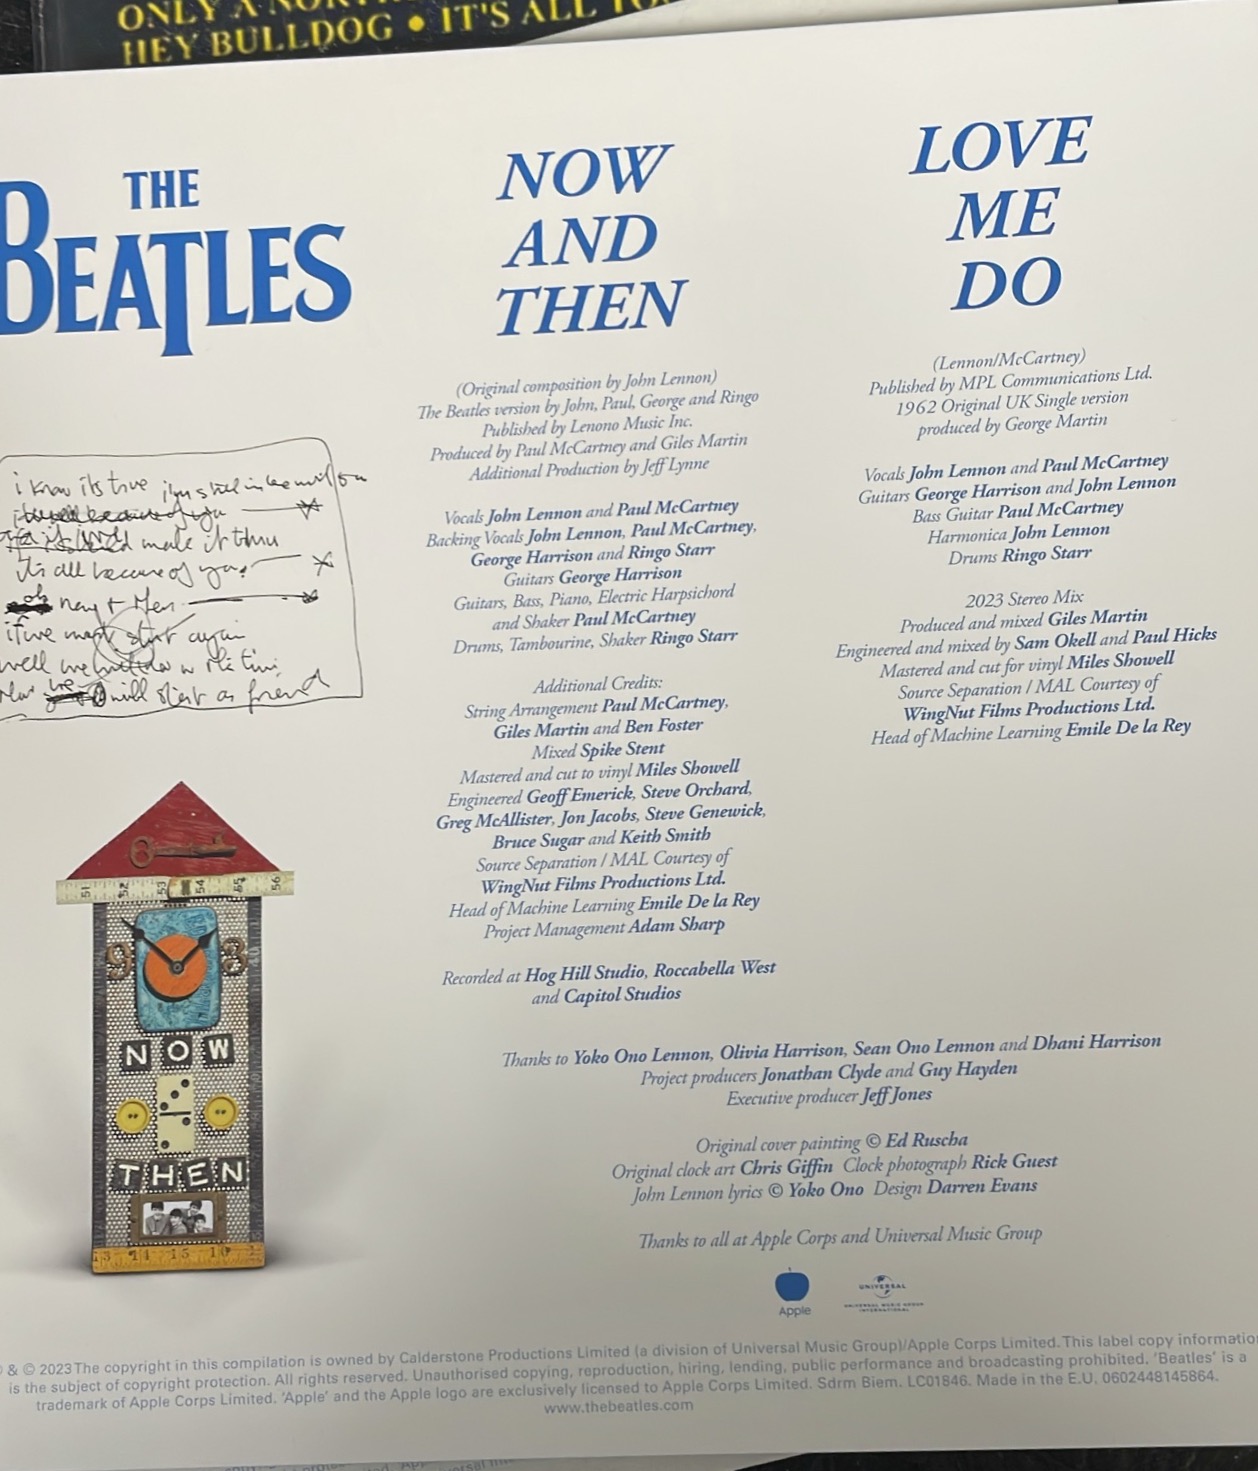 ONLY A NORTH
HEY BULLDOG • IT'S ALL TOO
THE
BEATLES
i know its true
make it thru
its all because of you
now + then
if we must start again
well we
will start as friend
51 52 53 54 55 56
9 3
NOW
THEN
13 14 15 16
NOW
AND
THEN
(Original composition by John Lennon)
The Beatles version by John, Paul, George and Ringo
Published by Lenono Music Inc.
Produced by Paul McCartney and Giles Martin
Additional Production by Jeff Lynne
Vocals John Lennon and Paul McCartney
Backing Vocals John Lennon, Paul McCartney,
George Harrison and Ringo Starr
Guitars George Harrison
Guitars, Bass, Piano, Electric Harpsichord
and Shaker Paul McCartney
Drums, Tambourine, Shaker Ringo Starr
Additional Credits:
String Arrangement Paul McCartney,
Giles Martin and Ben Foster
Mixed Spike Stent
Mastered and cut to vinyl Miles Showell
Engineered Geoff Emerick, Steve Orchard,
Greg McAllister, Jon Jacobs, Steve Genewick,
Bruce Sugar and Keith Smith
Source Separation / MAL Courtesy of
WingNut Films Productions Ltd.
Head of Machine Learning Emile De la Rey
Project Management Adam Sharp
Recorded at Hog Hill Studio, Roccabella West
and Capitol Studios
LOVE
ME
DO
(Lennon/McCartney)
Published by MPL Communications Ltd.
1962 Original UK Single version
produced by George Martin
Vocals John Lennon and Paul McCartney
Guitars George Harrison and John Lennon
Bass Guitar Paul McCartney
Harmonica John Lennon
Drums Ringo Starr
2023 Stereo Mix
Produced and mixed Giles Martin
Engineered and mixed by Sam Okell and Paul Hicks
Mastered and cut for vinyl Miles Showell
Source Separation / MAL Courtesy of
WingNut Films Productions Ltd.
Head of Machine Learning Emile De la Rey
Thanks to Yoko Ono Lennon, Olivia Harrison, Sean Ono Lennon and Dhani Harrison
Project producers Jonathan Clyde and Guy Hayden
Executive producer Jeff Jones
Original cover painting © Ed Ruscha
Original clock art Chris Giffin Clock photograph Rick Guest
John Lennon lyrics © Yoko Ono Design Darren Evans
Thanks to all at Apple Corps and Universal Music Group
Apple
UNIVERSAL
UNIVERSAL MUSIC GROUP
INTERNATIONAL
& © 2023 The copyright in this compilation is owned by Calderstone Productions Limited (a division of Universal Music Group)/Apple Corps Limited. This label copy informatio
is the subject of copyright protection. All rights reserved. Unauthorised copying, reproduction, hiring, lending, public performance and broadcasting prohibited. 'Beatles' is a
trademark of Apple Corps Limited. 'Apple' and the Apple logo are exclusively licensed to Apple Corps Limited. Sdrm Biem. LC01846. Made in the E.U. 0602448145864.
www.thebeatles.com